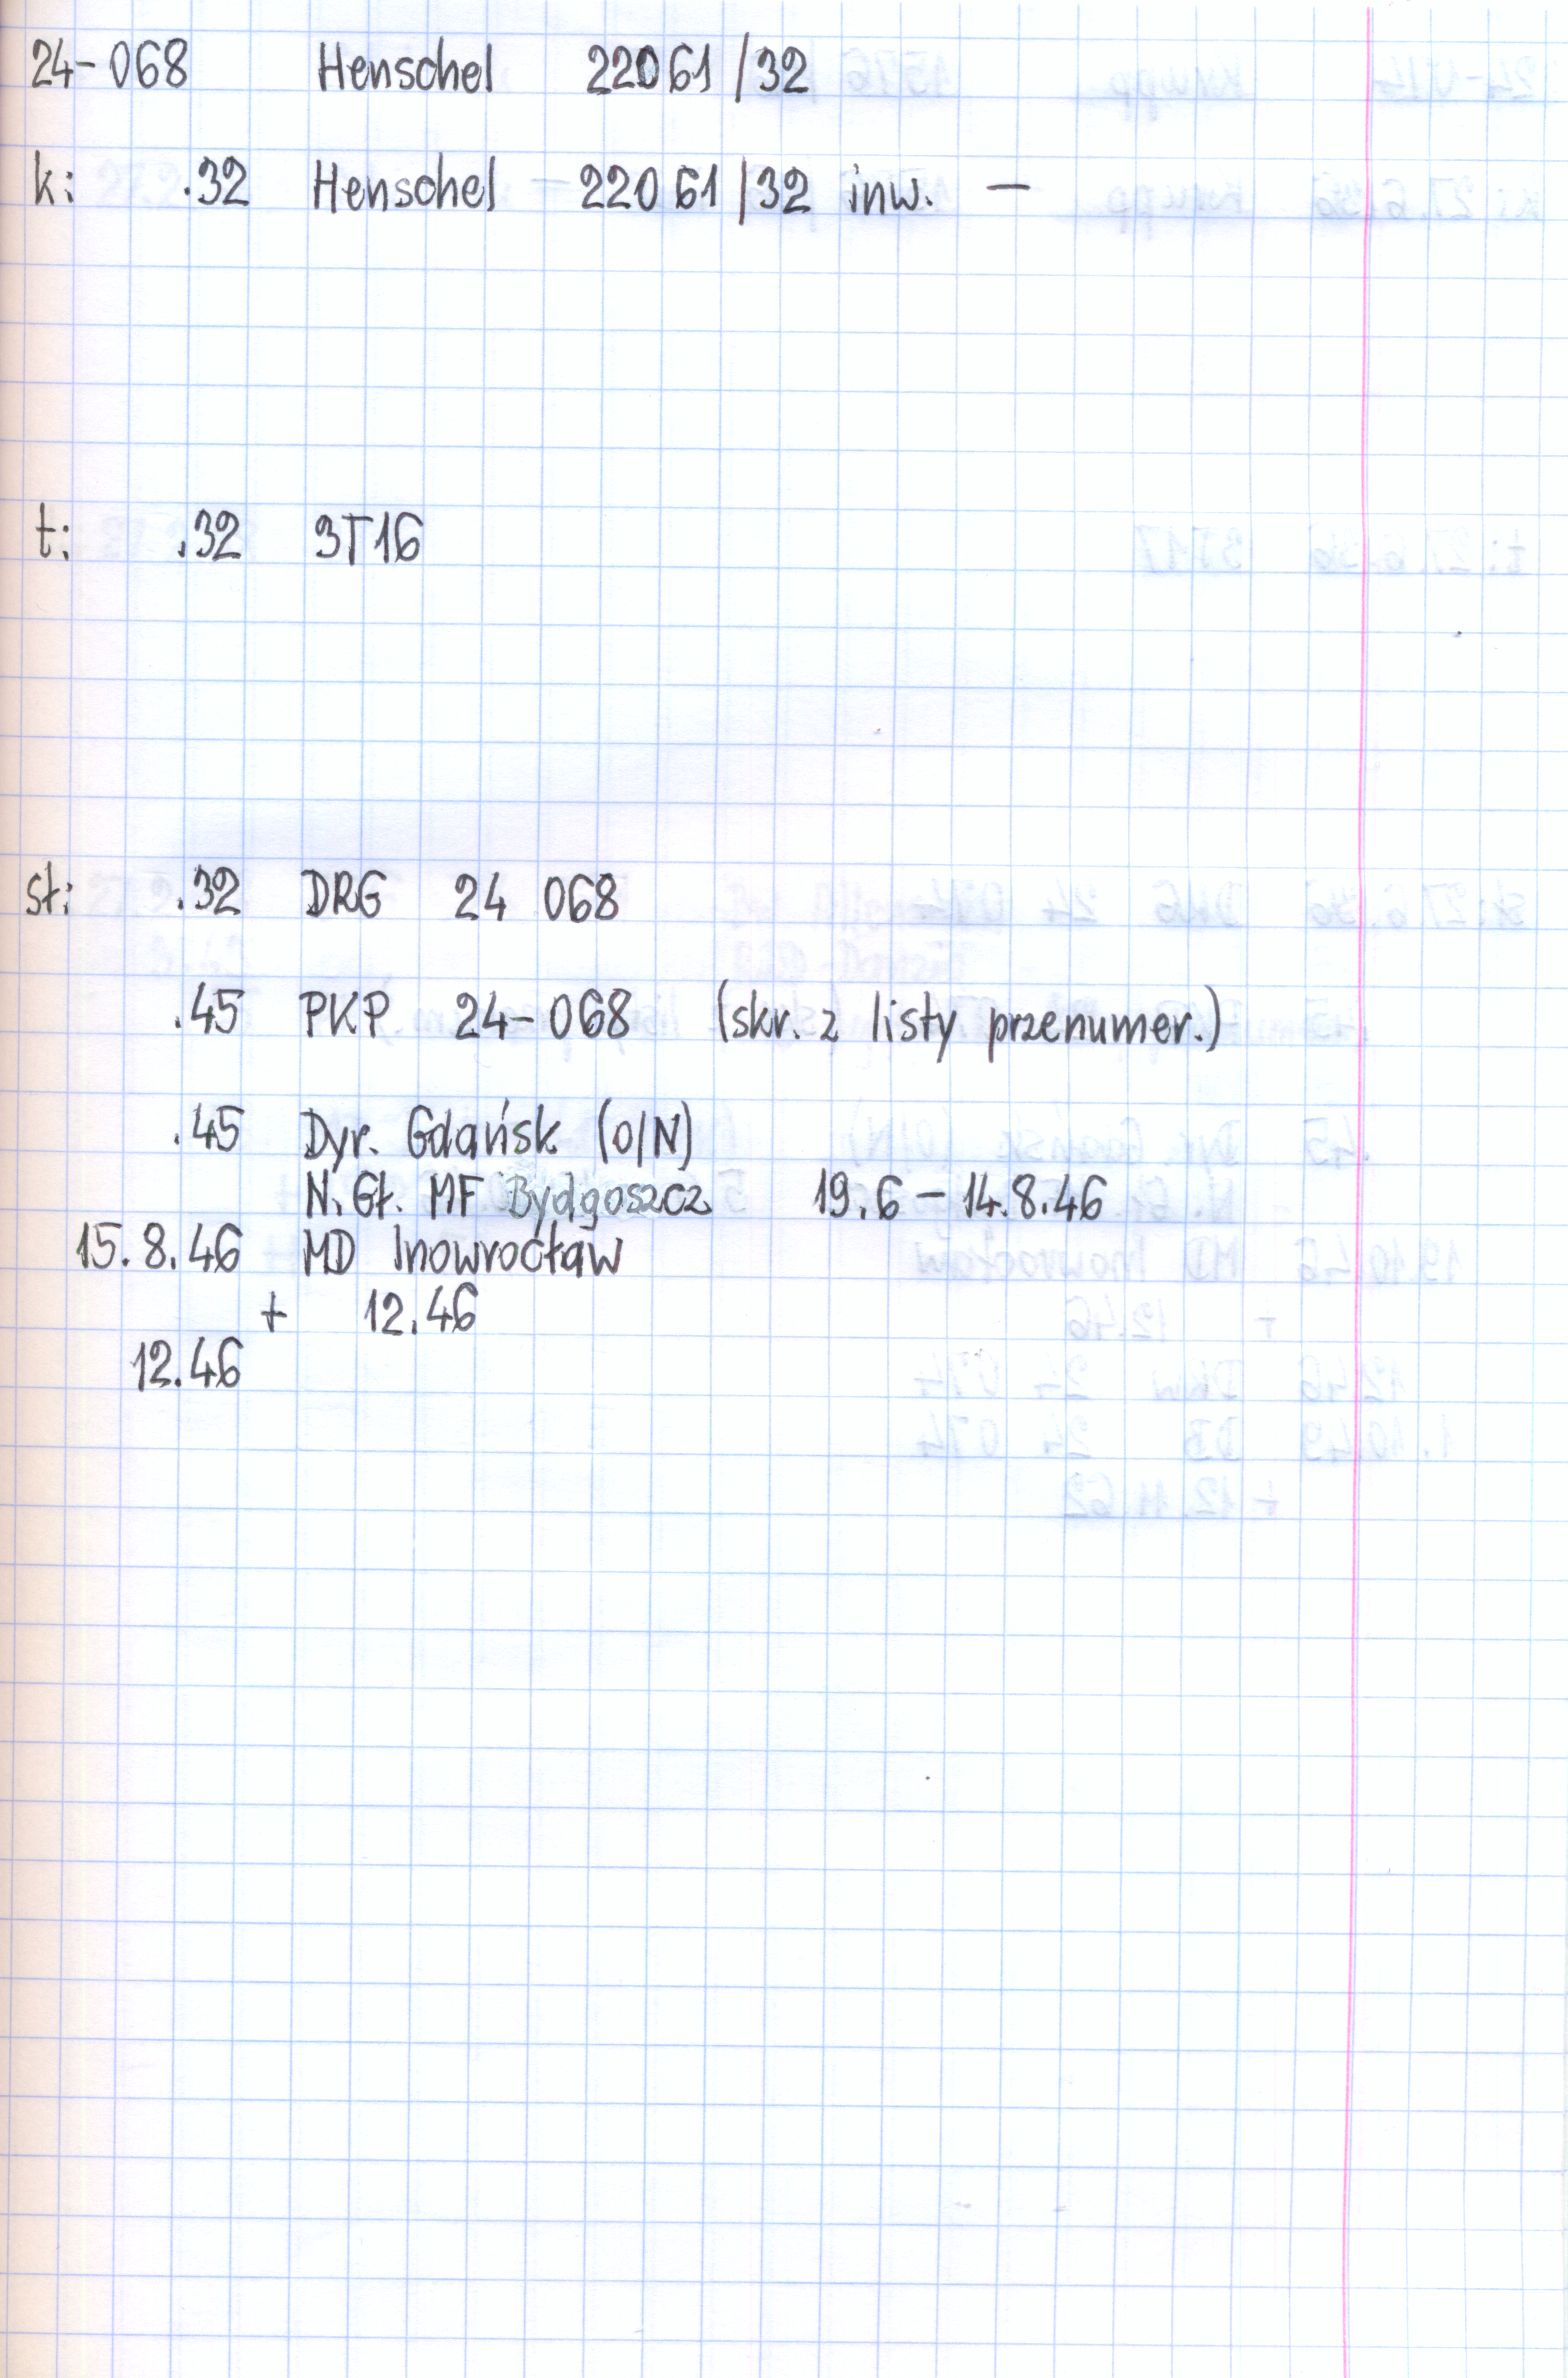 24-068 Henschel 22061/32
k: .32 Henschel 22061/32 inw. —
t: .32 3T16
st: .32 DRG 24 068
.45 PKP 24-068 (skr. z listy przenumer.)
.45 Dyr. Gdańsk (O/N)
N. Gł. MF Bydgoszcz 19.6 – 14.8.46
15.8.46 MD Inowrocław
+ 12.46
12.46